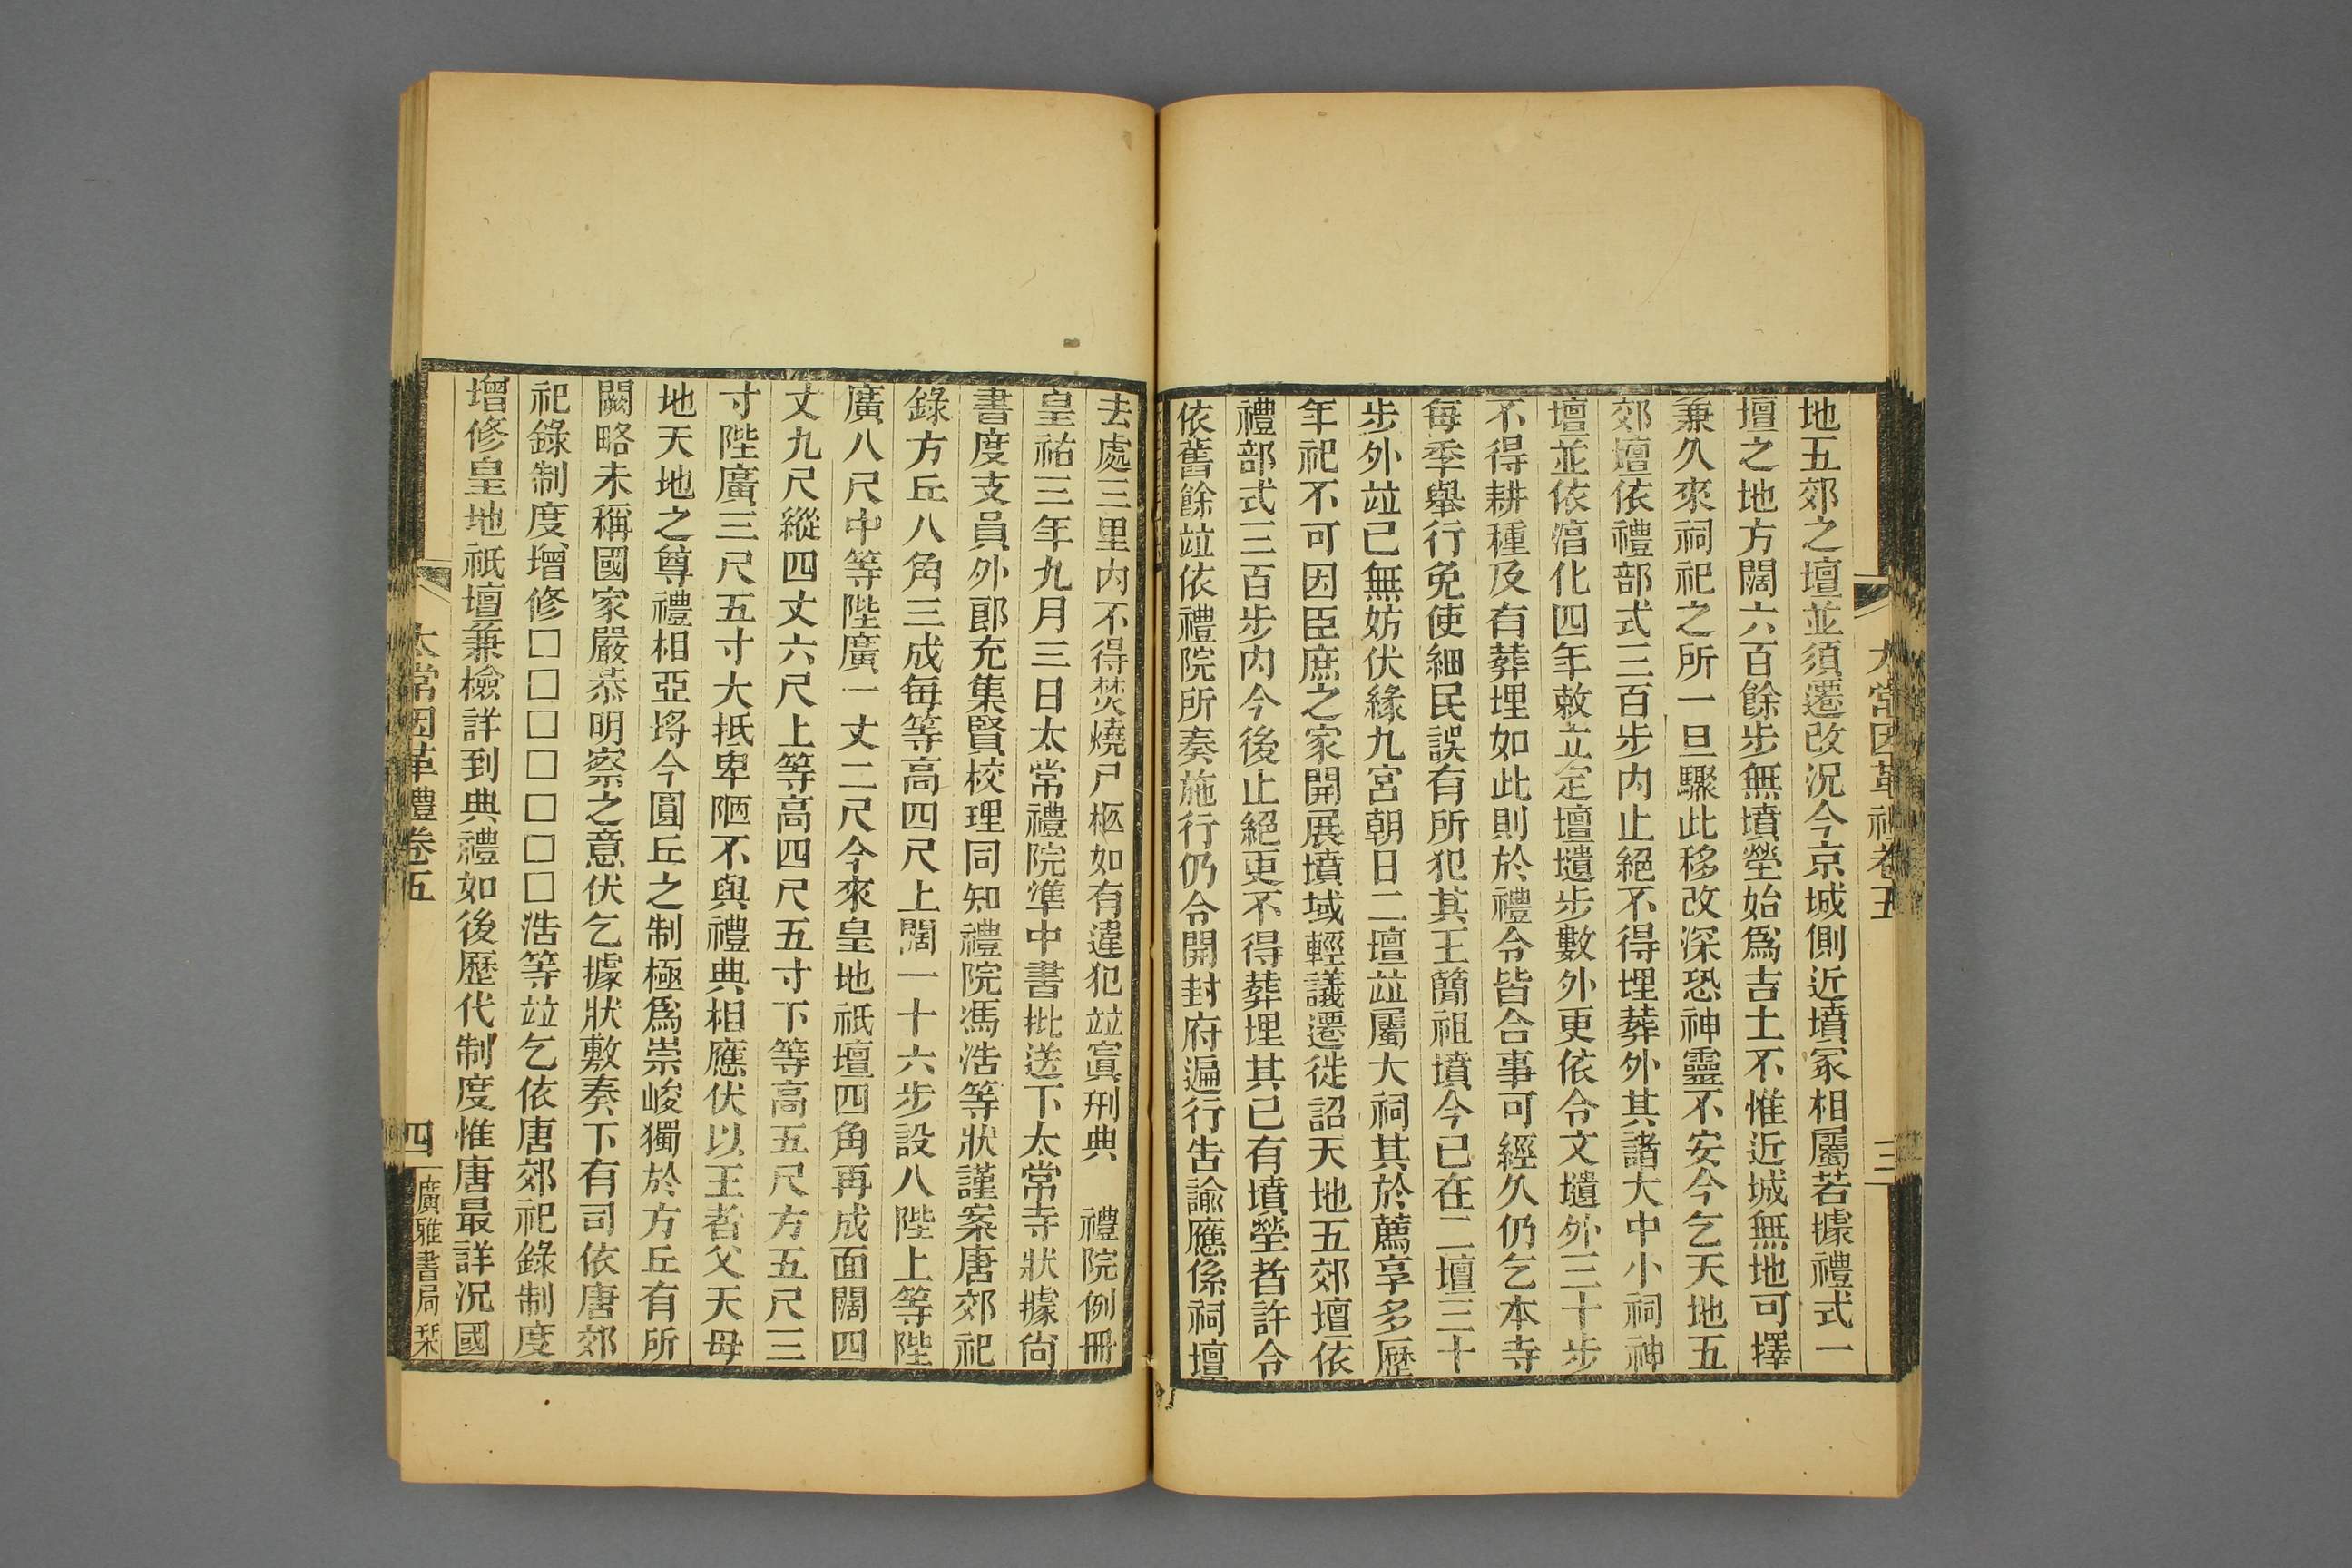 太常因革禮卷五
三
地五郊之壇並須遷改況今京城側近墳冢相屬若據禮式一
壇之地方闊六百餘步無墳塋始爲吉土不惟近城無地可擇
兼久來祠祀之所一旦驟此移改深恐神靈不安今乞天地五
郊壇依禮部式三百步內止絕不得埋葬外其諸大中小祠神
壇並依淳化四年敕立定壇壝步數外更依令文壝外三十步
不得耕種及有葬埋如此則於禮令皆合事可經久仍乞本寺
每季舉行免使細民誤有所犯其王簡祖墳今已在二壇三十
步外竝已無妨伏緣九宮朝日二壇竝屬大祠其於薦享多歷
年祀不可因臣庶之家開展墳域輕議遷徙詔天地五郊壇依
禮部式三百步內今後止絕更不得葬埋其已有墳塋者許令
依舊餘竝依禮院所奏施行仍令開封府遍行告諭應係祠壇
去處三里內不得焚燒尸柩如有違犯竝寘刑典　禮院例冊
皇祐三年九月三日太常禮院準中書批送下太常寺狀據尙
書度支員外郎充集賢校理同知禮院馮浩等狀謹案唐郊祀
錄方丘八角三成每等高四尺上闊一十六步設八陛上等陛
廣八尺中等陛廣一丈二尺今來皇地祇壇四角再成面闊四
丈九尺縱四丈六尺上等高四尺五寸下等高五尺方五尺三
寸陛廣三尺五寸大抵卑陋不與禮典相應伏以王者父天母
地天地之尊禮相亞埒今圓丘之制極爲崇峻獨於方丘有所
闕略未稱國家嚴恭明察之意伏乞據狀敷奏下有司依唐郊
祀錄制度增修□□□□□□□浩等竝乞依唐郊祀錄制度
增修皇地祇壇兼檢詳到典禮如後歷代制度惟唐最詳況國
太常因革禮卷五
四
廣雅書局栞